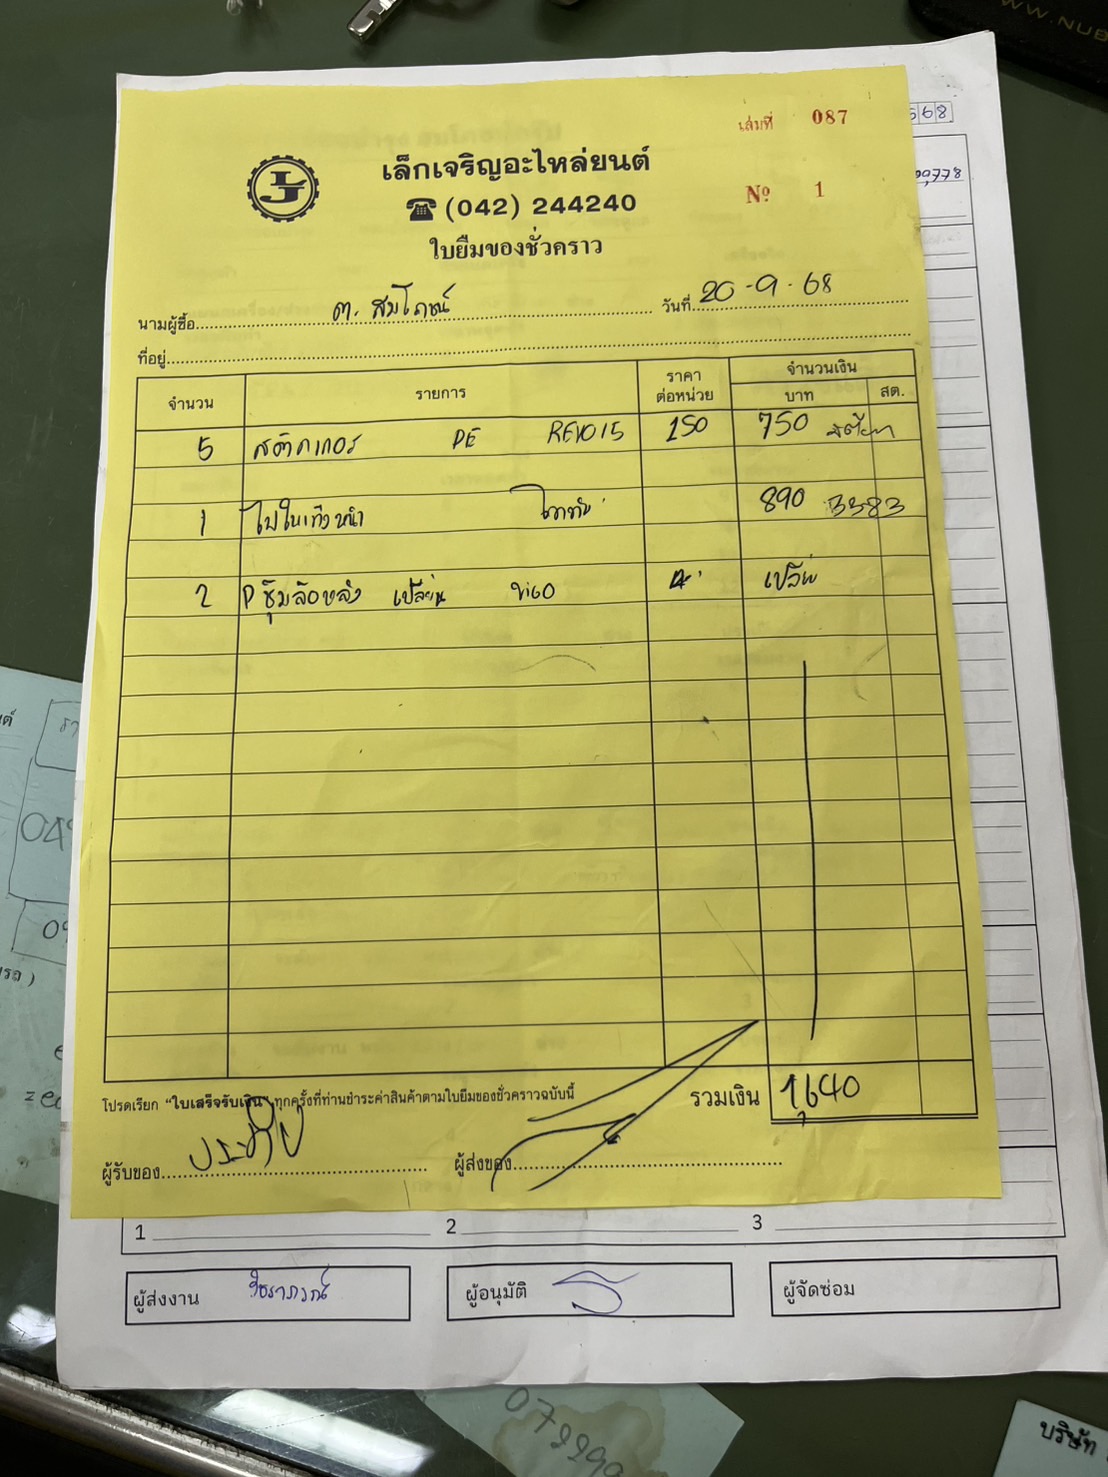 WWW.NUB
568
เล่มที่ 087
เล็กเจริญอะไหล่ยนต์
LJ
(042) 244240
№ 1
ใบยืมของชั่วคราว
นามผู้ซื้อ ต. สมโภชน์ วันที่ 20-9-68
ที่อยู่
จำนวน รายการ ราคาต่อหน่วย จำนวนเงิน
บาท สต.
5 สติกเกอร์ REVO15 150 750
1 890 3383
2 ซุ้มล้อหลัง เปลี่ยน VIGO
โปรดเรียก "ใบเสร็จรับเงิน" ทุกครั้งที่ท่านชำระค่าสินค้าตามใบยืมของชั่วคราวฉบับนี้ รวมเงิน 1,640
ผู้รับของ ผู้ส่งของ
1 2 3
ผู้ส่งงาน ผู้อนุมัติ ผู้จัดซ่อม
บริษัท